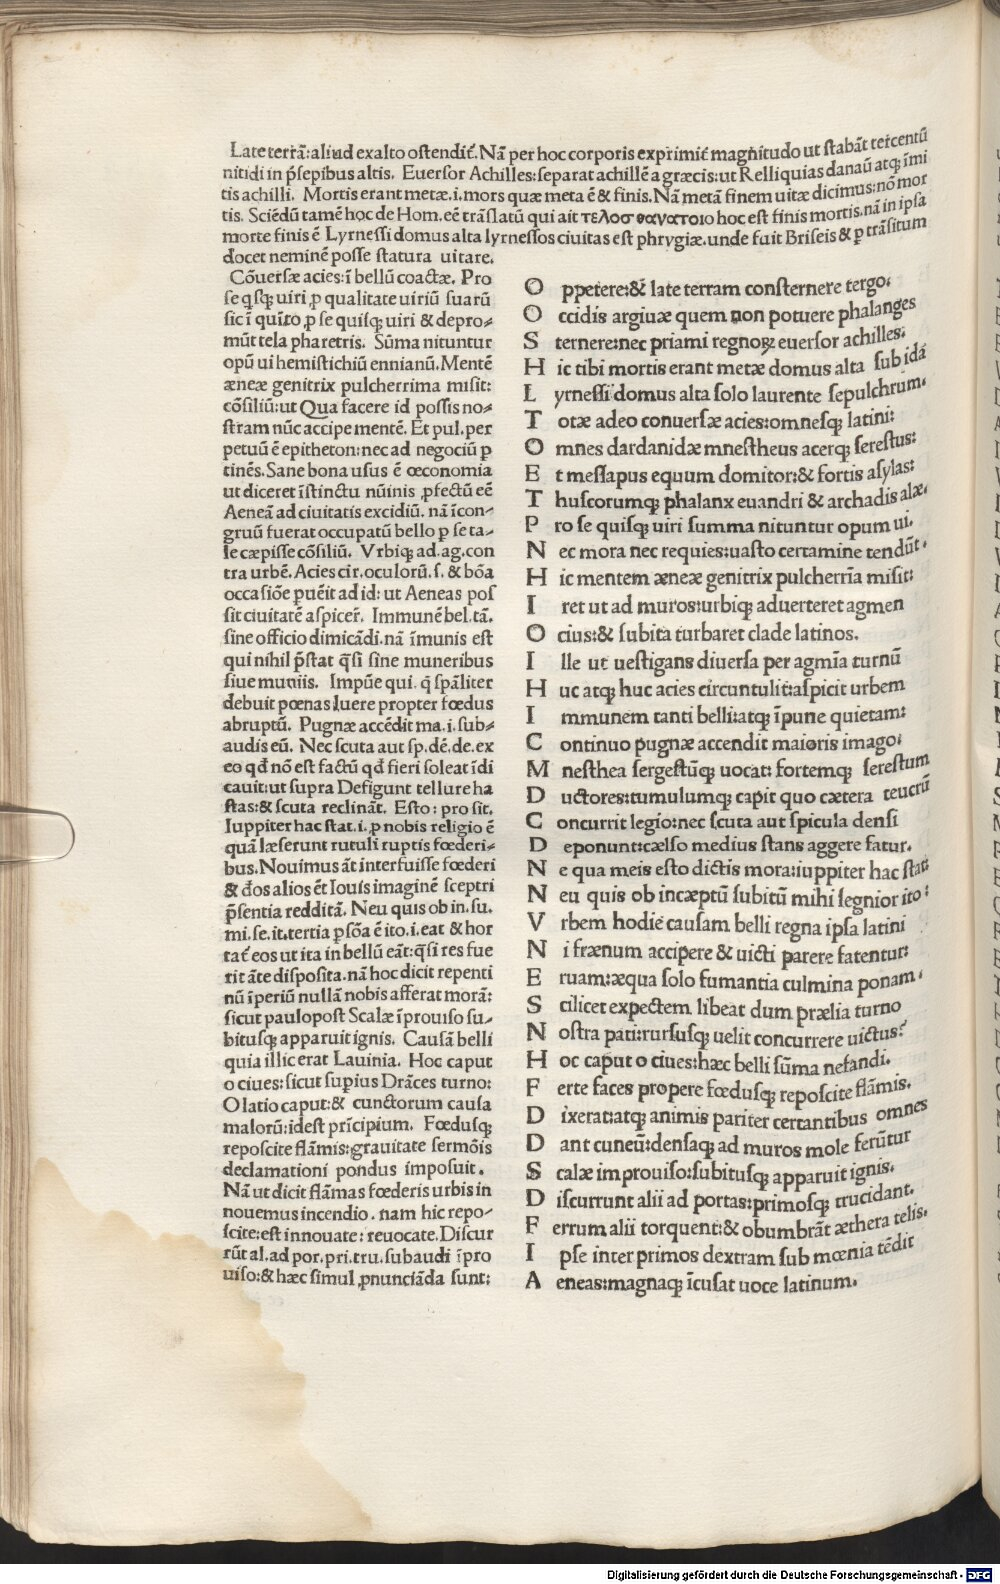 Late terrã:aliud exalto ostendit̃. Nã per hoc corporis exprimit̃ magnitudo ut stabãt tercentũ
nitidi in p̃sepibus altis. Euersor Achilles:separat achillẽ a græcis:ut Relliquias danaũ atq; ĩmi
tis achilli. Mortis erant metæ.i.mors quæ meta ẽ & finis. Nã metã finem uitæ dicimus:nõ mor
tis. Sciẽdũ tamẽ hoc de Hom.eẽ trãslatũ qui ait τελοσ θανατοιο hoc est finis mortis.nã in ipsa
morte finis ẽ Lyrnessi domus alta lyrnessos ciuitas est phrygiæ.unde fuit Briseis & ꝑ trãsitum
docet neminẽ posse statura uitare.
Cõuersæ acies:ĩ bellũ coactæ. Pro
se q̃sq; uiri ꝓ qualitate uiriũ suarũ
sic ĩ quĩto ꝓ se quisq; uiri & depro-
mũt tela pharetris. Sũma nituntur
opũ ui hemistichiũ ennianũ. Mentẽ
æneæ genitrix pulcherrima misit:
cõsiliũ:ut Qua facere id possis no-
stram nũc accipe mentẽ. Et pul.per
petuũ ẽ epitheton:nec ad negociũ ꝑ
tinẽs. Sane bona usus ẽ œconomia
ut diceret ĩstinctu nũinis ꝓfectũ eẽ
Aeneã ad ciuitatis excidiũ. nã ĩcon-
gruũ fuerat occupatũ bello ꝑ se ta-
le cæpisse cõsiliũ. Vrbiq; ad.ag.con
tra urbẽ. Acies cir.oculorũ.s. & bõa
occasiõe ꝑuẽit ad id: ut Aeneas pos
sit ciuitatẽ aspicer̃. Immunẽ bel.tã.
sine officio dimicãdi.nã ĩmunis est
qui nihil p̃stat q̃si sine muneribus
siue muniis. Impũe qui.q̃ spãliter
debuit pœnas luere propter fœdus
abruptũ. Pugnæ accẽdit ma.i.sub-
audis eũ. Nec scuta aut sp.dẽ.de.ex
eo qđ nõ est factũ qđ fieri soleat ĩdi
cauit:ut supra Defigunt tellure ha
stas:& scuta reclinãt. Esto: pro sit.
Iuppiter hac stat.i.ꝓ nobis religio ẽ
quã læserunt rutuli ruptis fœderi-
bus. Nouimus ãt interfuisse fœderi
& đos alios ẽt Iouis imaginẽ sceptri
p̃sentia redditã. Neu quis ob in.su.
mi.se.it.tertia ꝑsõa ẽ ito.i.eat & hor
tat̃ eos ut ita in bellũ eãt:q̃si res fue
rit ãte disposita.nã hoc dicit repenti
nũ ĩperiũ nullã nobis afferat morã:
sicut paulopost Scalæ ĩprouiso su-
bitusq; apparuit ignis. Causã belli
quia illic erat Lauinia. Hoc caput
o ciues:sicut suꝑius Drãces turno:
O latio caput:& cunctorum causa
malorũ:idest prĩcipium. Fœdusq;
reposcite flãmis:grauitate sermõis
declamationi pondus imposuit.
Nã ut dicit flãmas fœderis urbis in
nouemus incendio. nam hic repo-
scite:est innouate: reuocate. Discur
rũt al.ad por.pri.tru.subaudi ĩpro
uiso:& hæc simul ꝓnunciãda sunt:
O ppetere:& late terram consternere tergo.
O ccidis argiuæ quem non potuere phalanges
S ternere:nec priami regnoꝝ euersor achilles.
H ic tibi mortis erant metæ domus alta sub idã
L yrnessi domus alta solo laurente sepulchrum.
T otæ adeo conuersæ acies:omnesq; latini:
O mnes dardanidæ mnestheus acerq; serestus:
E t messapus equum domitor:& fortis asylas:
T huscorumq; phalanx euandri & archadis alæ.
P ro se quisq; uiri summa nituntur opum ui.
N ec mora nec requies:uasto certamine tendũt.
H ic mentem æneæ genitrix pulcherrĩa misit:
I ret ut ad muros:urbiq; aduerteret agmen
O cius:& subita turbaret clade latinos.
I lle ut uestigans diuersa per agmĩa turnũ
H uc atq; huc acies circuntulit:aspicit urbem
I mmunem tanti belli:atq; ĩpune quietam:
C ontinuo pugnæ accendit maioris imago.
M nesthea sergestũq; uocat: fortemq; serestum
D uctores:tumulumq; capit quo cætera teucrũ
C oncurrit legio:nec scuta aut spicula densi
D eponunt:cælso medius stans aggere fatur.
N e qua meis esto dictis mora:iuppiter hac stat:
N eu quis ob incæptũ subitũ mihi segnior ito:
V rbem hodie causam belli regna ipsa latini
N i frænum accipere & uicti parere fatentur:
E ruam:æqua solo fumantia culmina ponam.
S cilicet expectem libeat dum prælia turno
N ostra pati:rursusq; uelit concurrere uictus?
H oc caput o ciues:hæc belli sũma nefandi.
F erte faces propere fœdusq; reposcite flãmis.
D ixerat:atq; animis pariter certantibus omnes
D ant cuneũ:densaq; ad muros mole ferũtur
S calæ improuiso:subitusq; apparuit ignis.
D iscurrunt alii ad portas:primosq; trucidant.
F errum alii torquent:& obumbrãt æthera telis.
I pse inter primos dextram sub mœnia tẽdit
A eneas:magnaq; ĩcusat uoce latinum.
Digitalisierung gefördert durch die Deutsche Forschungsgemeinschaft - DFG